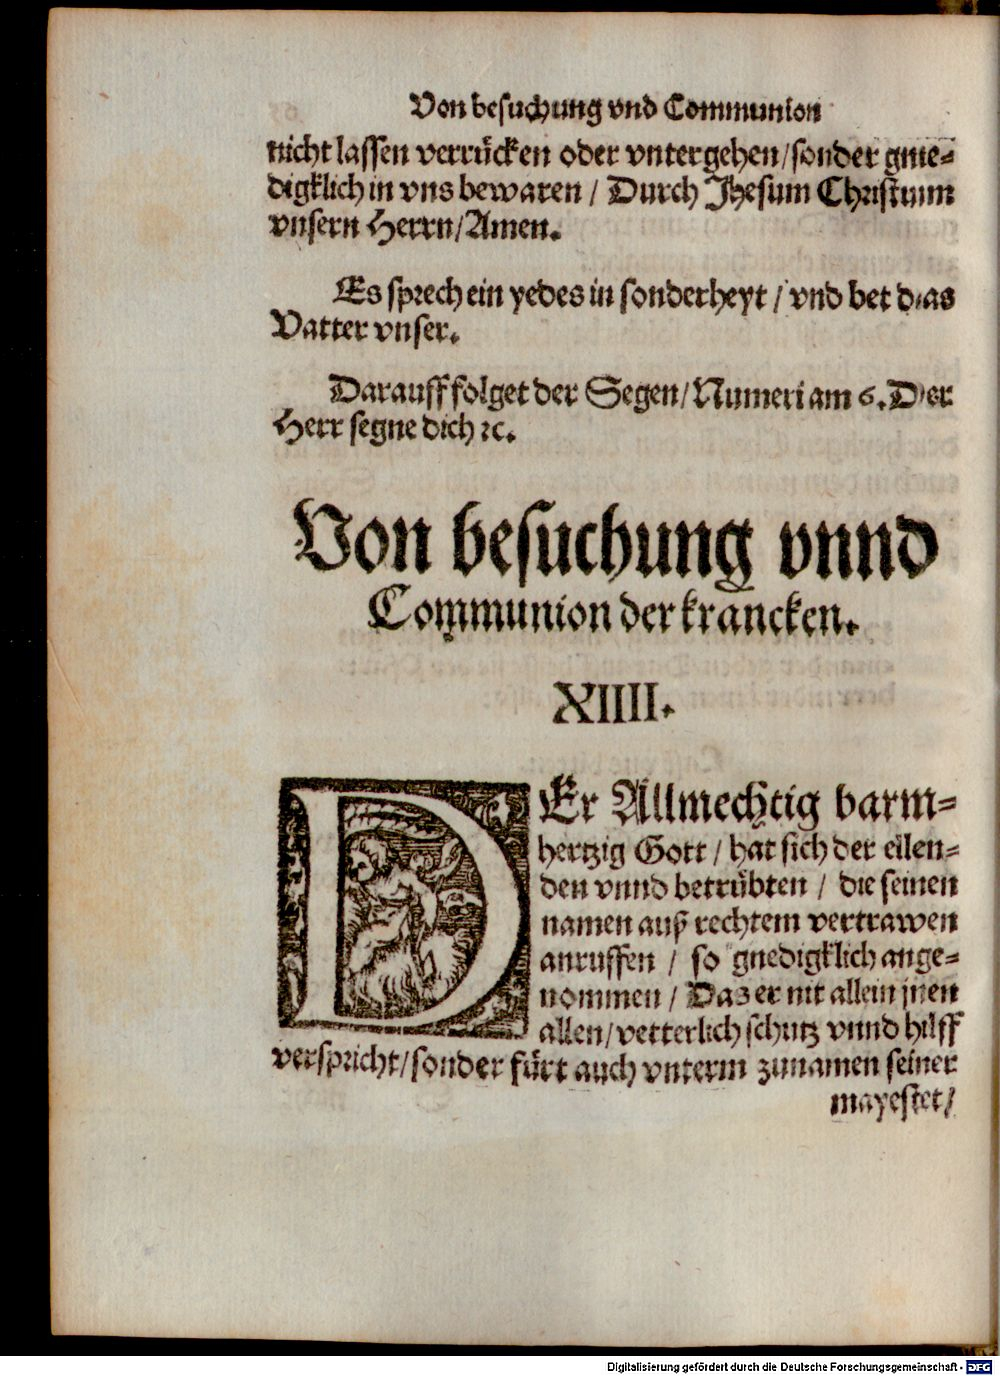 Von besuchung vnd Communion
nicht lassen verrücken oder vntergehen/sonder gne-
digklich in vns bewaren / Durch Jhesum Christum
vnsern Herrn/Amen.
Es sprech ein yedes in sonderheyt / vnd bet das
Vatter vnser.
Darauff folget der Segen/Numeri am 6. Der
Herr segne dich ꝛc.
Von besuchung vnnd
Communion der krancken.
XIIII.
DEr Allmechtig barm-
hertzig Gott / hat sich der ellen-
den vnnd betrübten / die seinen
namen auß rechtem vertrawen
anruffen / so gnedigklich ange-
nommen / Das er nit allein jnen
allen/vetterlich schutz vnnd hilff
verspricht/sonder fürt auch vnterm zunamen seiner
mayestet/
Digitalisierung gefördert durch die Deutsche Forschungsgemeinschaft - DFG